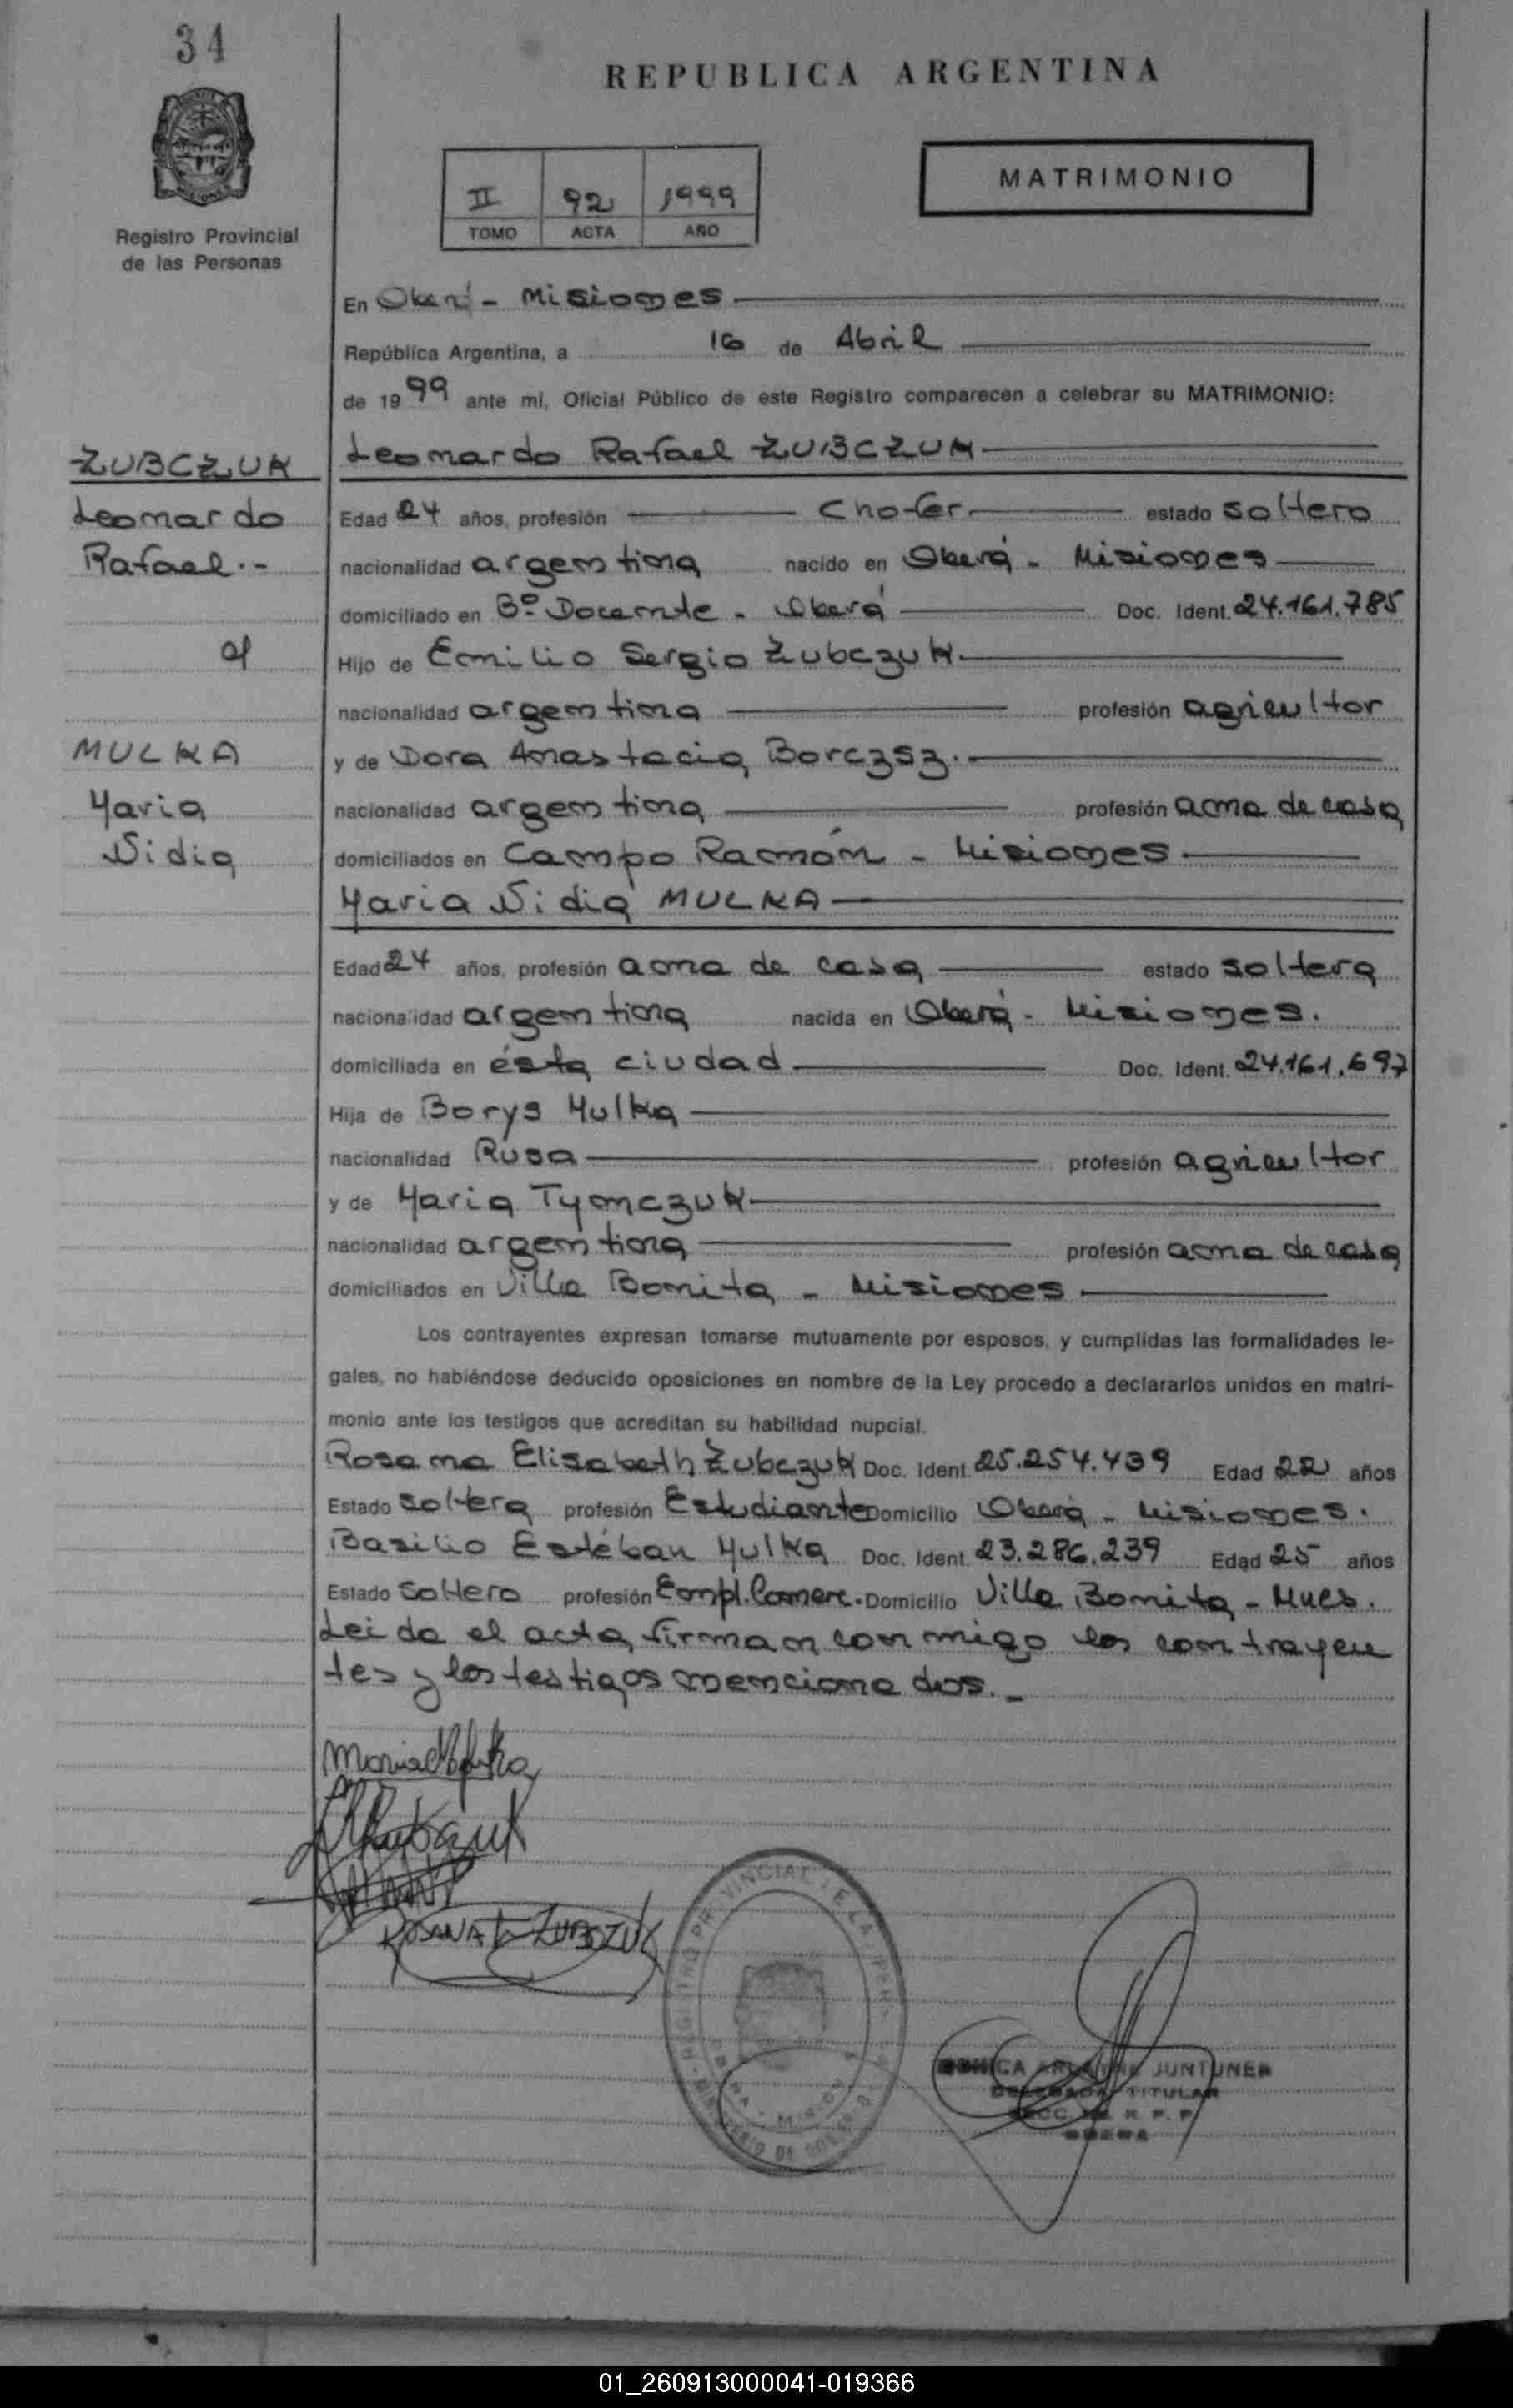 34
REPUBLICA ARGENTINA
MATRIMONIO
II 92 1999
TOMO ACTA AÑO
Registro Provincial
de las Personas
En Oberá - Misiones
República Argentina, a 16 de Abril
de 1999 ante mí, Oficial Público de este Registro comparecen a celebrar su MATRIMONIO:
ZUBCZUK
Leonardo Rafael ZUBCZUK
Leonardo
Edad 24 años, profesión Chofer. estado soltero
Rafael.-
nacionalidad argentina nacido en Oberá - Misiones
domiciliado en Bº Docente - Oberá Doc. Ident. 24.161.785
Hijo de Emilio Sergio Zubczuk.
nacionalidad argentina profesión agricultor
MULKA
y de Dora Anastacia Borczsz.
Maria
nacionalidad argentina profesión ama de casa
Nidia
domiciliados en Campo Ramón - Misiones
Maria Nidia MULKA
Edad 24 años, profesión ama de casa estado soltera
nacionalidad argentina nacida en Oberá - Misiones.
domiciliada en ésta ciudad Doc. Ident. 24.161.697
Hija de Borys Mulka
nacionalidad Rusa profesión agricultor
y de Maria Tymczuk
nacionalidad argentina profesión ama de casa
domiciliados en Villa Bonita - Misiones
Los contrayentes expresan tomarse mutuamente por esposos, y cumplidas las formalidades le-
gales, no habiéndose deducido oposiciones en nombre de la Ley procedo a declararlos unidos en matri-
monio ante los testigos que acreditan su habilidad nupcial.
Rosana Elisabeth Zubczuk Doc. Ident. 25.254.439 Edad 22 años
Estado soltera profesión Estudiante Domicilio Oberá - Misiones.
Basilio Estéban Mulka Doc. Ident. 23.286.239 Edad 25 años
Estado soltero profesión Empl. Comerc. Domicilio Villa Bonita - Mnes.
Leida el acta, firman conmigo los contrayen
tes y los testigos mencionados.-
ROSANA E. ZUBCZUK
JUNTUNEN
TITULAR
R. P. P.
OBERA
01_260913000041-019366